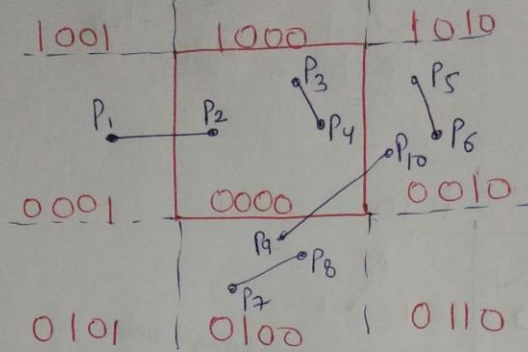 1001 1000 1010
P3 P5
P1 P2 P4 P6
P10
0001 0000 0010
P9 P8
P7
0101 0100 0110